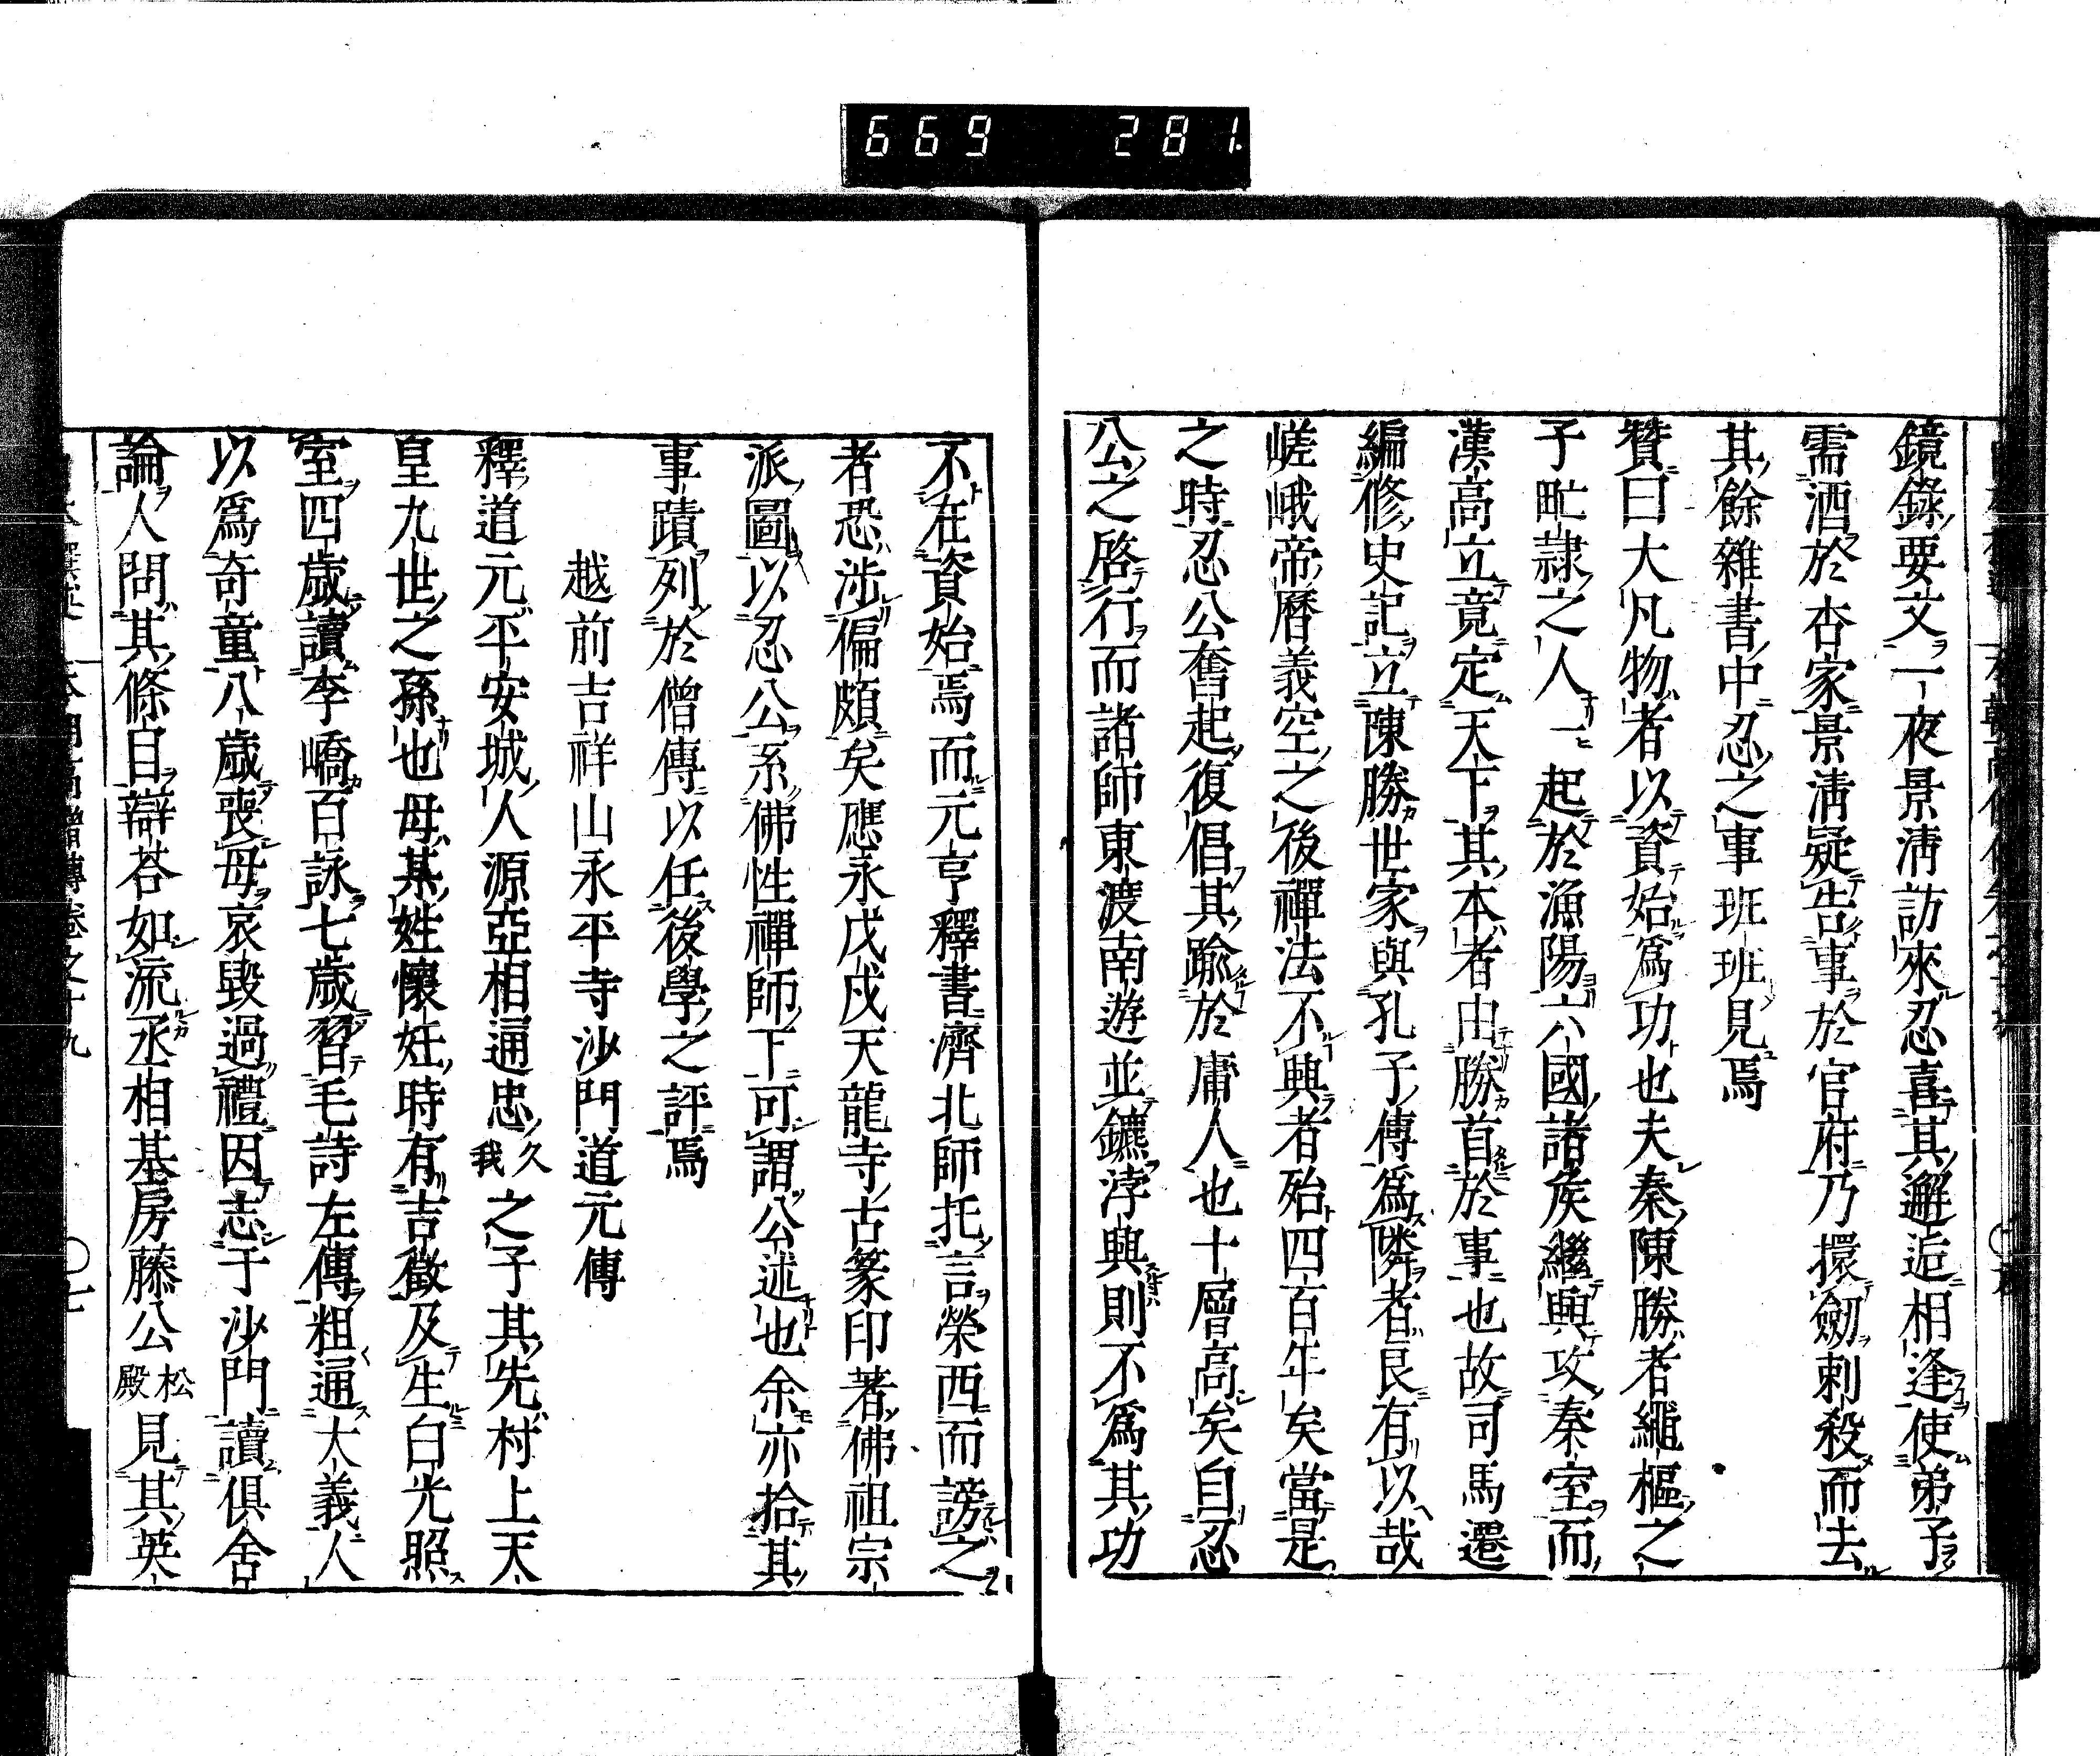 669 281
鏡錄要文一夜景淸訪來忍喜其邂逅相逢使弟子
需酒於杏家景淸疑告事於官府乃擐劒刺殺而去
其餘雜書中忍之事班班見焉
贊曰大凡物者以資始爲功也夫秦陳勝者繩樞之
子甿隷之人一起於漁陽六國諸矦繼興攻秦室而
漢高立竟定天下其本者由勝首於事也故司馬遷
編修史記立陳勝世家與孔子傳爲隣者良有以哉
嵯峨帝曆義空之後禪法不興者殆四百年矣當是
之時忍公奮起復倡其踰於庸人也十層高矣自忍
公之啓行而諸師東渡南遊並鑣浡興則不爲其功
不在資始焉而元亨釋書濟北師托言榮西而謗之
者恐涉偏頗矣應永戊戌天龍寺古篆印著佛祖宗
派圖以忍公系佛性禪師下可謂公述也余亦拾其
事蹟列於僧傳以任後學之評焉
越前吉祥山永平寺沙門道元傳
釋道元平安城人源亞相通忠久我之子其先村上天
皇九世之孫也母某姓懷妊時有吉徵及生白光照
室四歲讀李嶠百詠七歲習毛詩左傳粗通大義人
以爲奇童八歲喪母哀毀過禮因志于沙門讀俱舍
論人問其條目辯荅如流丞相基房藤公松殿見其英